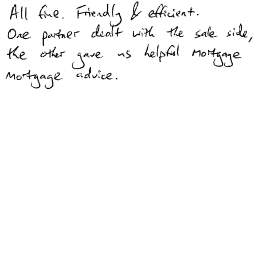 All fine. Friendly & efficient.
One partner dealt with the sale side,
the other gave us helpful mortgage
mortgage advice.